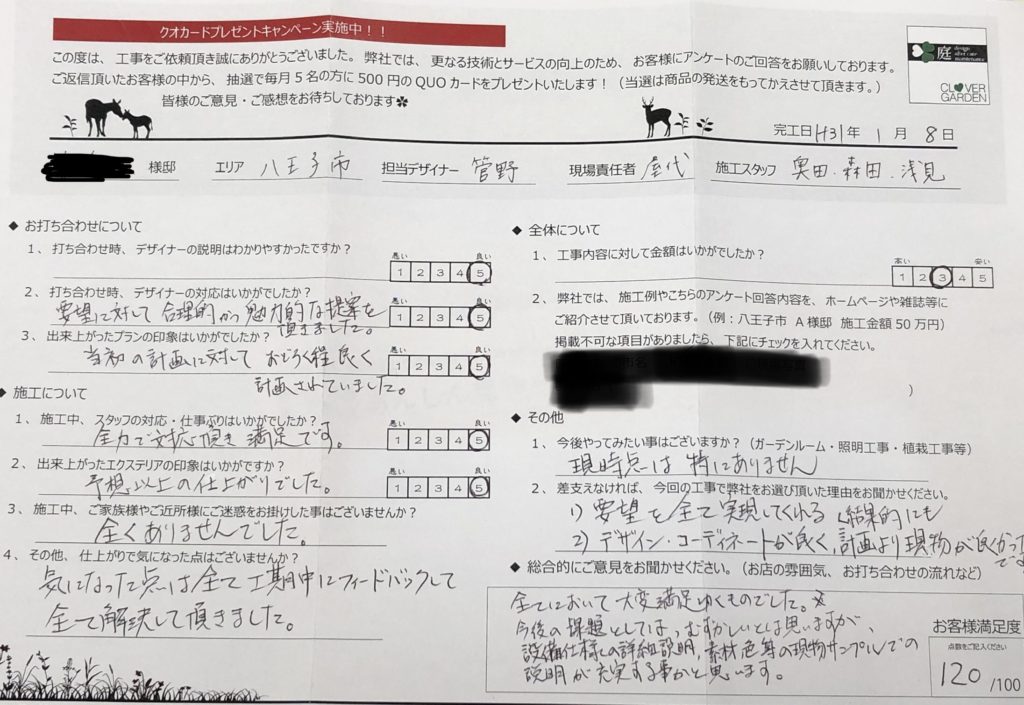 クオカードプレゼントキャンペーン実施中！！
この度は、工事をご依頼頂き誠にありがとうございました。弊社では、更なる技術とサービスの向上のため、お客様にアンケートのご回答をお願いしております。
ご返信頂いたお客様の中から、抽選で毎月5名の方に500円のQUOカードをプレゼントいたします！（当選は商品の発送をもってかえさせて頂きます。）
皆様のご意見・ご感想をお待ちしております
庭 design after care maintenance
CLOVER GARDEN
完工日 H31年 1月 8日
様邸 エリア 八王子市 担当デザイナー 管野 現場責任者 屋代 施工スタッフ 奥田・森田・浅見
◆ お打ち合わせについて
1、打ち合わせ時、デザイナーの説明はわかりやすかったですか？
悪い 良い
1 2 3 4 5
2、打ち合わせ時、デザイナーの対応はいかがでしたか？
悪い 良い
要望に対して合理的かつ魅力的な提案を
頂きました。
1 2 3 4 5
3、出来上がったプランの印象はいかがでしたか？
悪い 良い
当初の計画に対して おどろく程良く
計画されていました。
1 2 3 4 5
◆ 施工について
1、施工中、スタッフの対応・仕事ぶりはいかがでしたか？
悪い 良い
全力で対応頂き満足です。
1 2 3 4 5
2、出来上がったエクステリアの印象はいかがですか？
悪い 良い
予想以上の仕上がりでした。
1 2 3 4 5
3、施工中、ご家族様やご近所様にご迷惑をお掛けした事はございませんか？
全くありませんでした。
4、その他、仕上がりで気になった点はございませんか？
気になった点は全て工期中にフィードバックして
全て解決して頂きました。
◆ 全体について
1、工事内容に対して金額はいかがでしたか？
高い 安い
1 2 3 4 5
2、弊社では、施工例やこちらのアンケート回答内容を、ホームページや雑誌等に
ご紹介させて頂いております。（例：八王子市 A様邸 施工金額50万円）
掲載不可な項目がありましたら、下記にチェックを入れてください。
）
◆ その他
1、今後やってみたい事はございますか？（ガーデンルーム・照明工事・植栽工事等）
現時点は特にありません
2、差支えなければ、今回の工事で弊社をお選び頂いた理由をお聞かせください。
1) 要望を全て実現してくれる
2) デザイン・コーディネートが良く、
結果的にも
計画より現物が良かった
です
◆ 総合的にご意見をお聞かせください。（お店の雰囲気、お打ち合わせの流れなど）
全てにおいて大変満足ゆくものでした。
今後の課題としては、むずかしいとは思いますが、
設備仕様の詳細説明、素材色等の現物サンプルでの
説明が充実する事かと思います。
お客様満足度
点数をご記入ください
120 /100